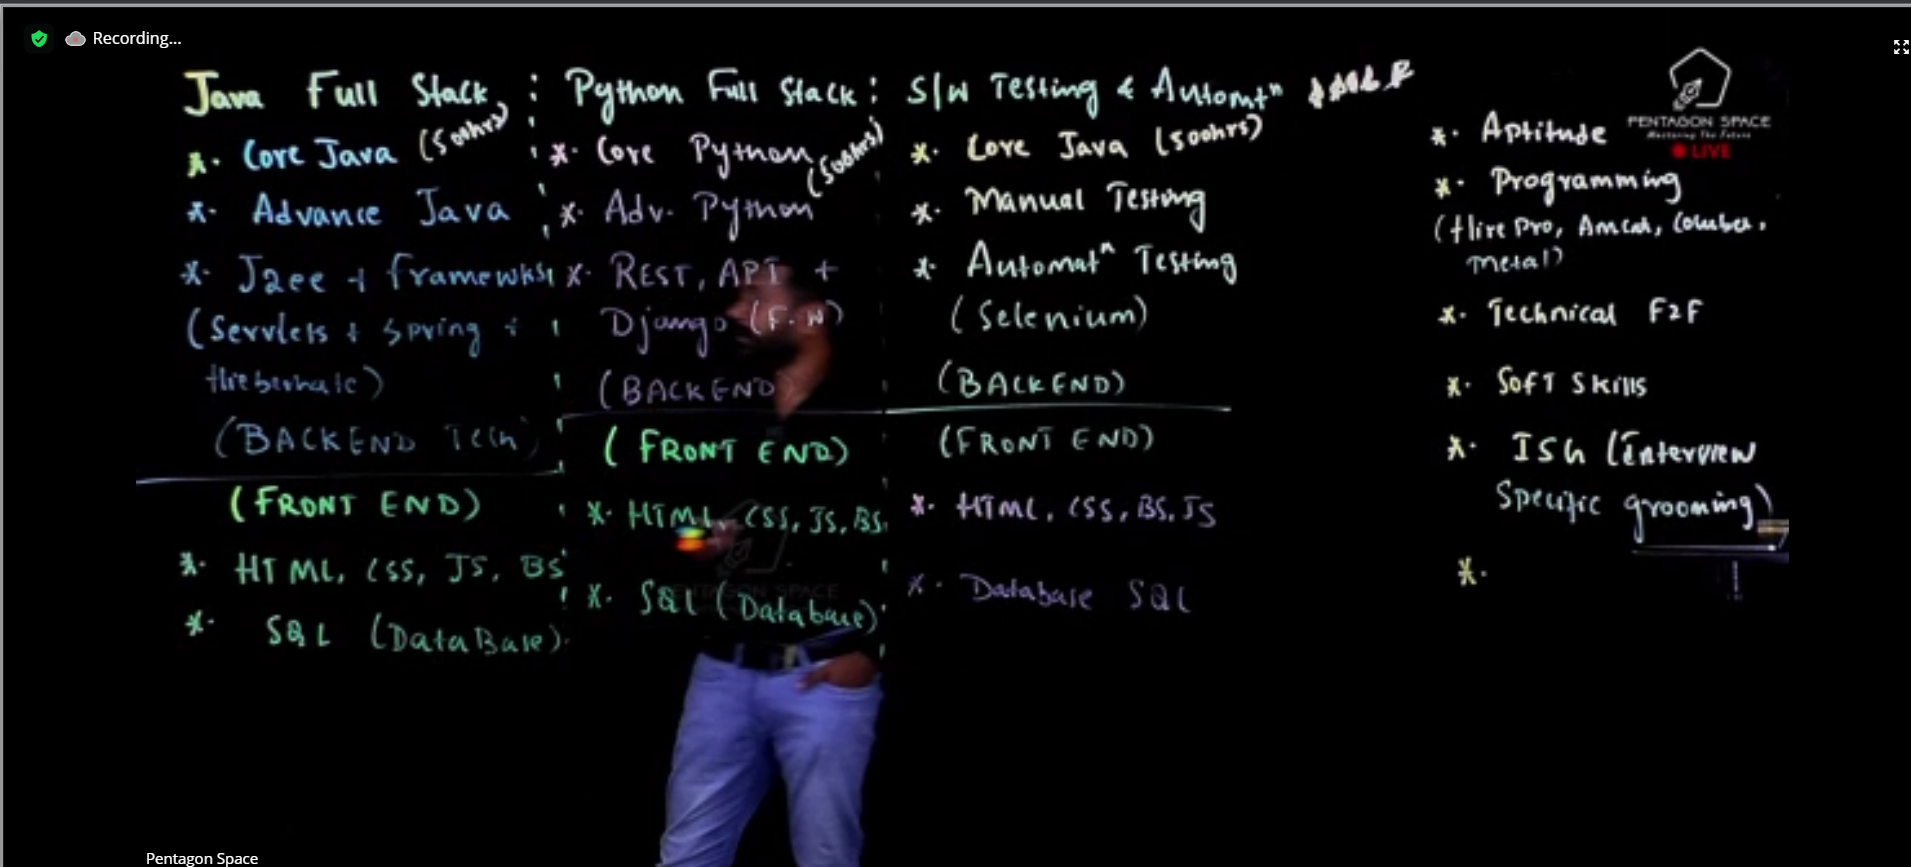 Recording...
Java Full Stack
*. Core Java (500hrs)
*. Advance Java
*. J2ee + framewks
(Servlets + Spring +
Hiebernate)
(BACKEND Tech)
(FRONT END)
*. HTML, CSS, JS, BS
*. SQL (DataBase).
Python Full Stack
*. Core Python (500hrs)
*. Adv. Python
*. REST, API +
Django (F.W)
(BACKEND)
(FRONT END)
*. HTML, CSS, JS, BS.
*. SQL (Database)
S/W Testing & Automtⁿ
*. Core Java (500hrs)
*. Manual Testing
*. Automatⁿ Testing
(Selenium)
(BACKEND)
(FRONT END)
*. HTML, CSS, BS, JS
*. Database SQL
PENTAGON SPACE
Mastering The Future
LIVE
*. Aptitude
*. Programming
(Hire Pro, Amcat,
Metal)
*. Technical F2F
*. Soft Skills
*. ISG (Interview
Specific grooming)
*.
PENTAGON SPACE
Pentagon Space